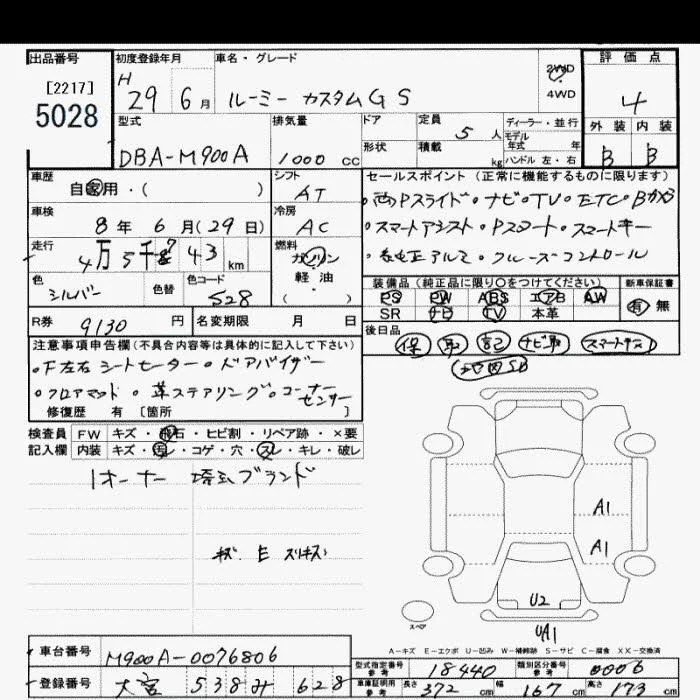 出品番号 初度登録年月 車名・グレード 2WD 4WD 評価点
[2217] 5028
H 29 6月 ルーミー カスタムG S 4
型式 排気量 ドア 定員 5人 ディーラー・並行 外装 内装
モデル年式 年
DBA-M900A 1000cc 形状 積載 kg ハンドル 左・右 B B
車歴 自家用・( ) シフト AT
セールスポイント (正常に機能するものに限ります)
・両Pスライド・ナビ・TV・ETC・Bカメラ
車検 8年 6月(29日) 冷房 AC
・スマートアシスト・Pスタート・スマートキー
走行 4万5千 43 km 燃料 ガソリン 軽油 ( )
・純正アルミ・クルーズコントロール
色 シルバー 色替 色コード S28
装備品 (純正品に限り○をつけてください) 新車保証書
PS PW ABS エアB AW 有 無
SR ナビ TV 本革
R券 9130円 名変期限 月 日
後日品 保 取 記 ナビ取 スマートキー
地図SD
注意事項申告欄 (不具合内容等は具体的に記入して下さい)
・F左右シートヒーター・ドアバイザー
・フロアマット・革ステアリング・コーナーセンサー
修復歴 有 [箇所
検査員 FW キズ・飛石・ヒビ割・リペア跡・×要
記入欄 内装 キズ・汚レ・コゲ・穴・スレ・キレ・破レ
1オーナー 埼玉ブランド
キズ E スリキズ
A1
A1
U2
UA1
スペア
A-キズ E-エクボ U-凹み W-補修跡 S-サビ C-腐食 XX-交換済
車台番号 M900A-0076806
型式指定番号 参考 18440 類別区分番号 参考 0006
登録番号 大宮 538 628
車庫証明用 参考 長さ 372cm 幅 167cm 高さ 173cm